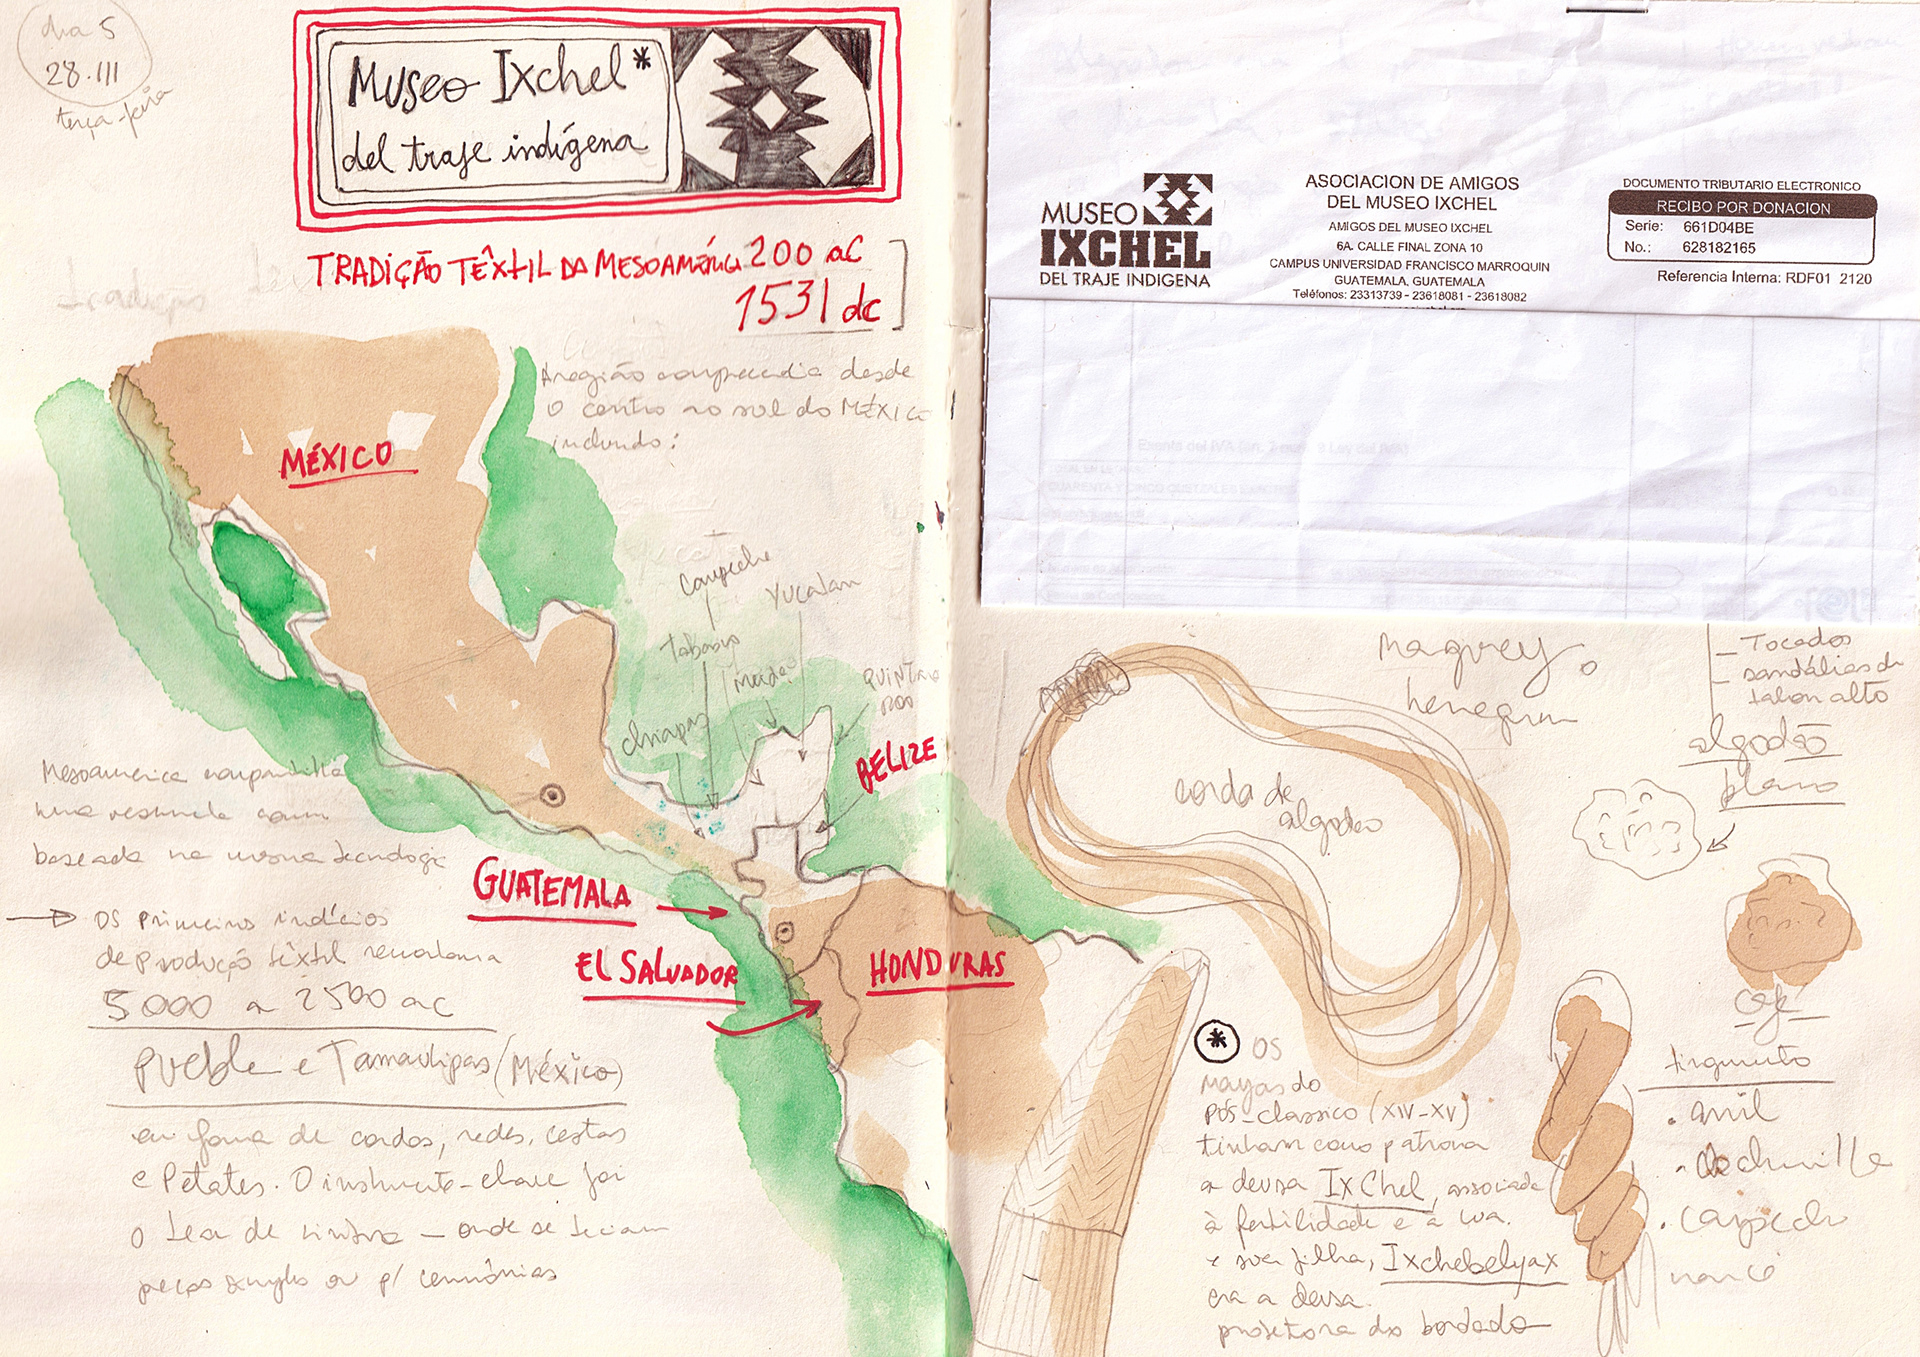 dia 5
28.III
terça-feira
Museo Ixchel*
del traje indígena
TRADIÇÃO TÊXTIL DA MESOAMÉRICA 200 aC
1531 dc
tradição
A região compreendia desde
o centro ao sul do MÉXICO
incluindo:
MÉXICO
Campeche
Yucatan
Tabasco
QUINTANA
ROO
chiapas
BELIZE
Mesoamerica compartilha
baseada na mesma tecnologia
GUATEMALA
EL SALVADOR
HONDURAS
→ OS primeiros indícios
de produção têxtil
5000 a 2500 ac
Puebla e Tamaulipas (México)
em forma de cordas, redes, cestas
e Petates. O instrumento-chave foi
o tear de cintura – onde se teciam
peças simples ou p/ cerimônias
MUSEO
IXCHEL
DEL TRAJE INDIGENA
ASOCIACION DE AMIGOS
DEL MUSEO IXCHEL
AMIGOS DEL MUSEO IXCHEL
6A. CALLE FINAL ZONA 10
CAMPUS UNIVERSIDAD FRANCISCO MARROQUIN
GUATEMALA, GUATEMALA
Teléfonos: 23313739 - 23618081 - 23618082
DOCUMENTO TRIBUTARIO ELECTRONICO
RECIBO POR DONACION
Serie: 661D04BE
No.: 628182165
Referencia Interna: RDF01 2120
CUARENTA Y CINCO QUETZALES EXACTOS
maguey
henequen
– Tocados
– sandálias de
talon alto
algodão
blanco
corda de
algodão
café
* OS
mayas do
pós-classico (XIV-XV)
tinham como patrona
a deusa IxChel, associada
à fertilidade e à lua.
e sua filha, Ixchebelyax
era a deusa
protetora do bordado
. anil